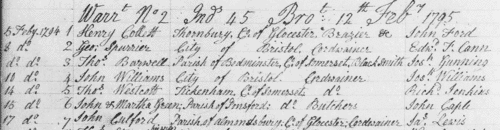 Warrt. No 2 Ind 45 Brot. 12th Feby 1795
5 Feby. 1794 1 Henry Collett Thornbury, C. of Glocester Brazier & John Ford
8 do. 2 Geo: Spurrier City of Bristol Cordwainer Edwd. T. Cann
do do. 3 Thos. Barwell Parish of Bedminster, C. of Somerset, Black Smith Jos: Gunning
10 do. 4 John Williams City of Bristol Cordwainer Jos: Williams
14 do 5 Thos. Westcott Tickenham, C. of Somerset do Richd. Jenkins
15 do 6 John & Martha Green; Parish of Pensford: do Butchers John Cable
17 do, 7 John Culford, Parish of Almondsbury: C. of Glocester: Cordwainer Jas. Lewis